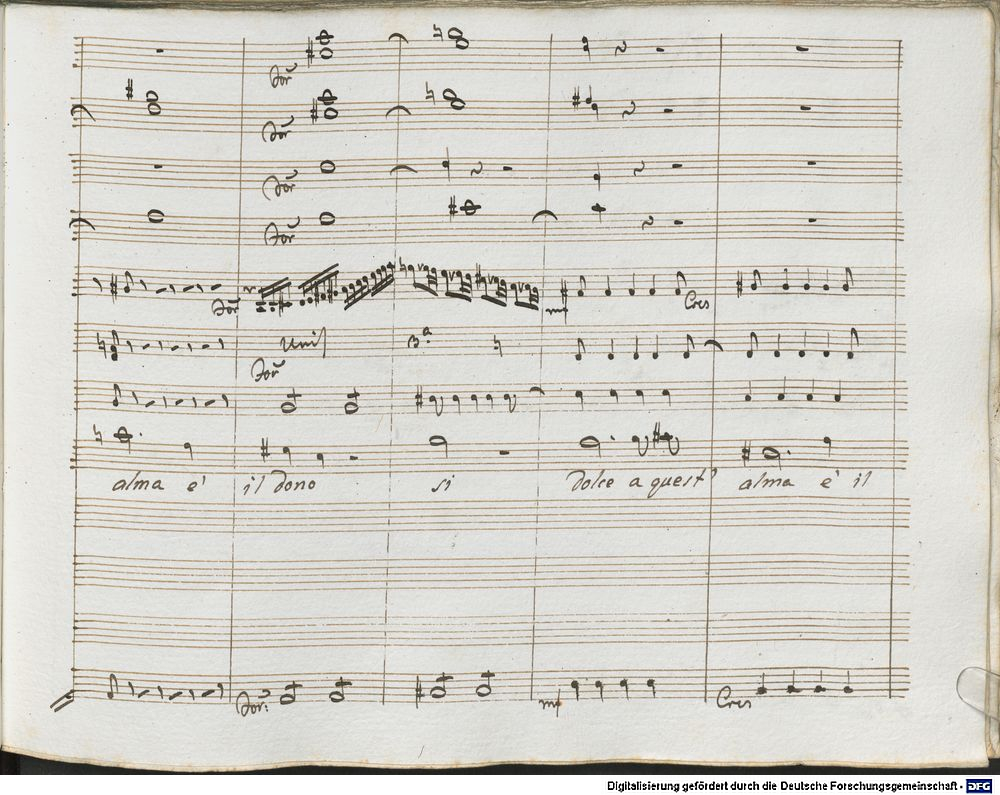 for
for
for
for
for
mf
Cres
Unis
3ª
for
alma e' il dono si dolce a quest' alma e' il
for:
mf
Cres
Digitalisierung gefördert durch die Deutsche Forschungsgemeinschaft - DFG